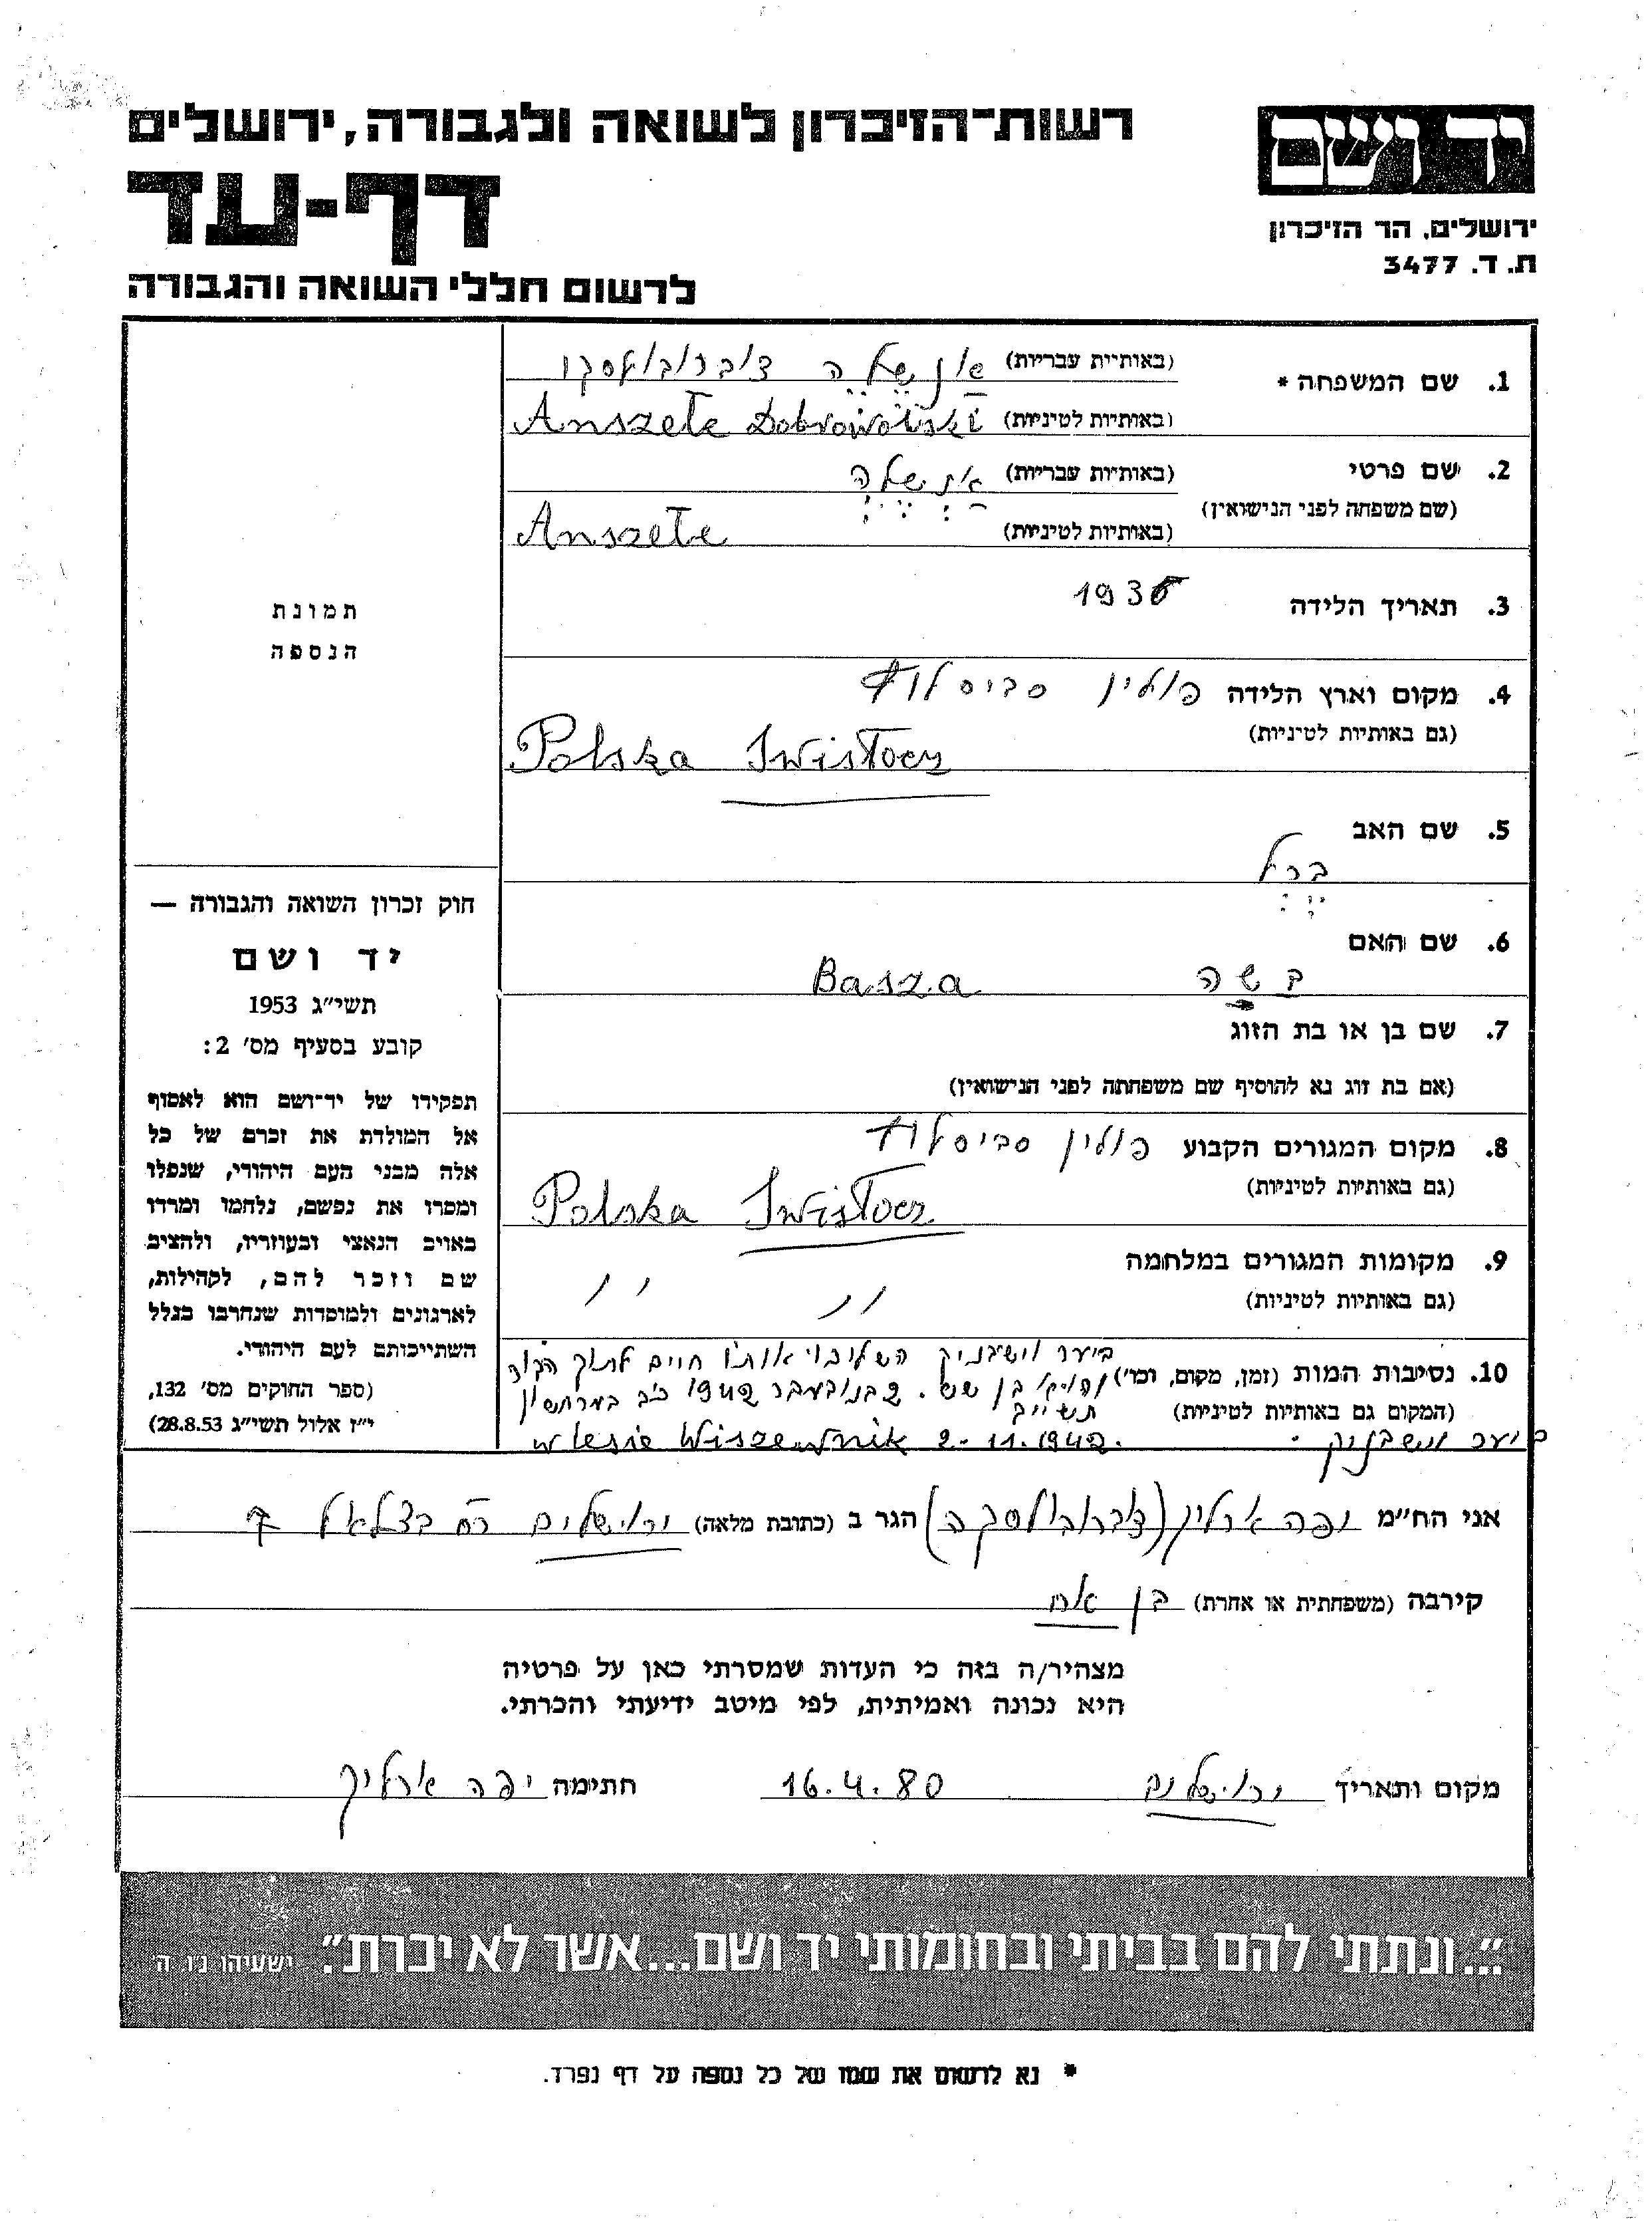 רשות־הזיכרון לשואה ולגבורה, ירושלים
יד ושם
דף-עד
ירושלים, הר הזיכרון
ת. ד. 3477
לרשום חללי השואה והגבורה
1. שם המשפחה * (באותיות עבריות) אנשלה דוברובולסקי
(באותיות לטיניות) Anszele Dobrowolski
2. שם פרטי (באותיות עבריות) אנשלה
(שם משפחה לפני הנישואין)
(באותיות לטיניות) Anszele
3. תאריך הלידה 1936
תמונת
הנספה
4. מקום וארץ הלידה פולין סביסלוץ
(גם באותיות לטיניות)
Polska Swisłocz
5. שם האב
ברל
6. שם האם
בשה Basza
7. שם בן או בת הזוג
(אם בת זוג נא להוסיף שם משפחתה לפני הנישואין)
8. מקום המגורים הקבוע פולין סביסלוץ
(גם באותיות לטיניות)
Polska Swisłocz
9. מקומות המגורים במלחמה
(גם באותיות לטיניות) " "
10. נסיבות המות (זמן, מקום, וכו׳) ביער וישבניק השליכו אותו חיים לתוך הבור
והוא בן שש. 2 בנובמבר 1942 כ״ב במרחשון
(המקום גם באותיות לטיניות) תש״ג
ביער וישבניק. w lesie Wiszewnik 2-11.1942.
חוק זכרון השואה והגבורה —
יד ושם
תשי״ג 1953
קובע בסעיף מס׳ 2:
תפקידו של יד־ושם הוא לאסוף
אל המולדת את זכרם של כל
אלה מבני העם היהודי, שנפלו
ומסרו את נפשם, נלחמו ומרדו
באויב הנאצי ובעוזריו, ולהציב
שם וזכר להם, לקהילות,
לארגונים ולמוסדות שנחרבו בגלל
השתייכותם לעם היהודי.
(ספר החוקים מס׳ 132,
י״ז אלול תשי״ג 28.8.53)
אני הח״מ יפה ארליך (דוברובולסקה) הגר ב (כתובת מלאה) ירושלים רח בצלאל 7
קירבה (משפחתית או אחרת) בן אח
מצהיר/ה בזה כי העדות שמסרתי כאן על פרטיה
היא נכונה ואמיתית, לפי מיטב ידיעתי והכרתי.
מקום ותאריך ירושלים 16.4.80 חתימה יפה ארליך
״...ונתתי להם בביתי ובחומותי יד ושם...אשר לא יכרת״. ישעיהו נ״ו ה׳
* נא לרשום את שמו של כל נספה על דף נפרד.